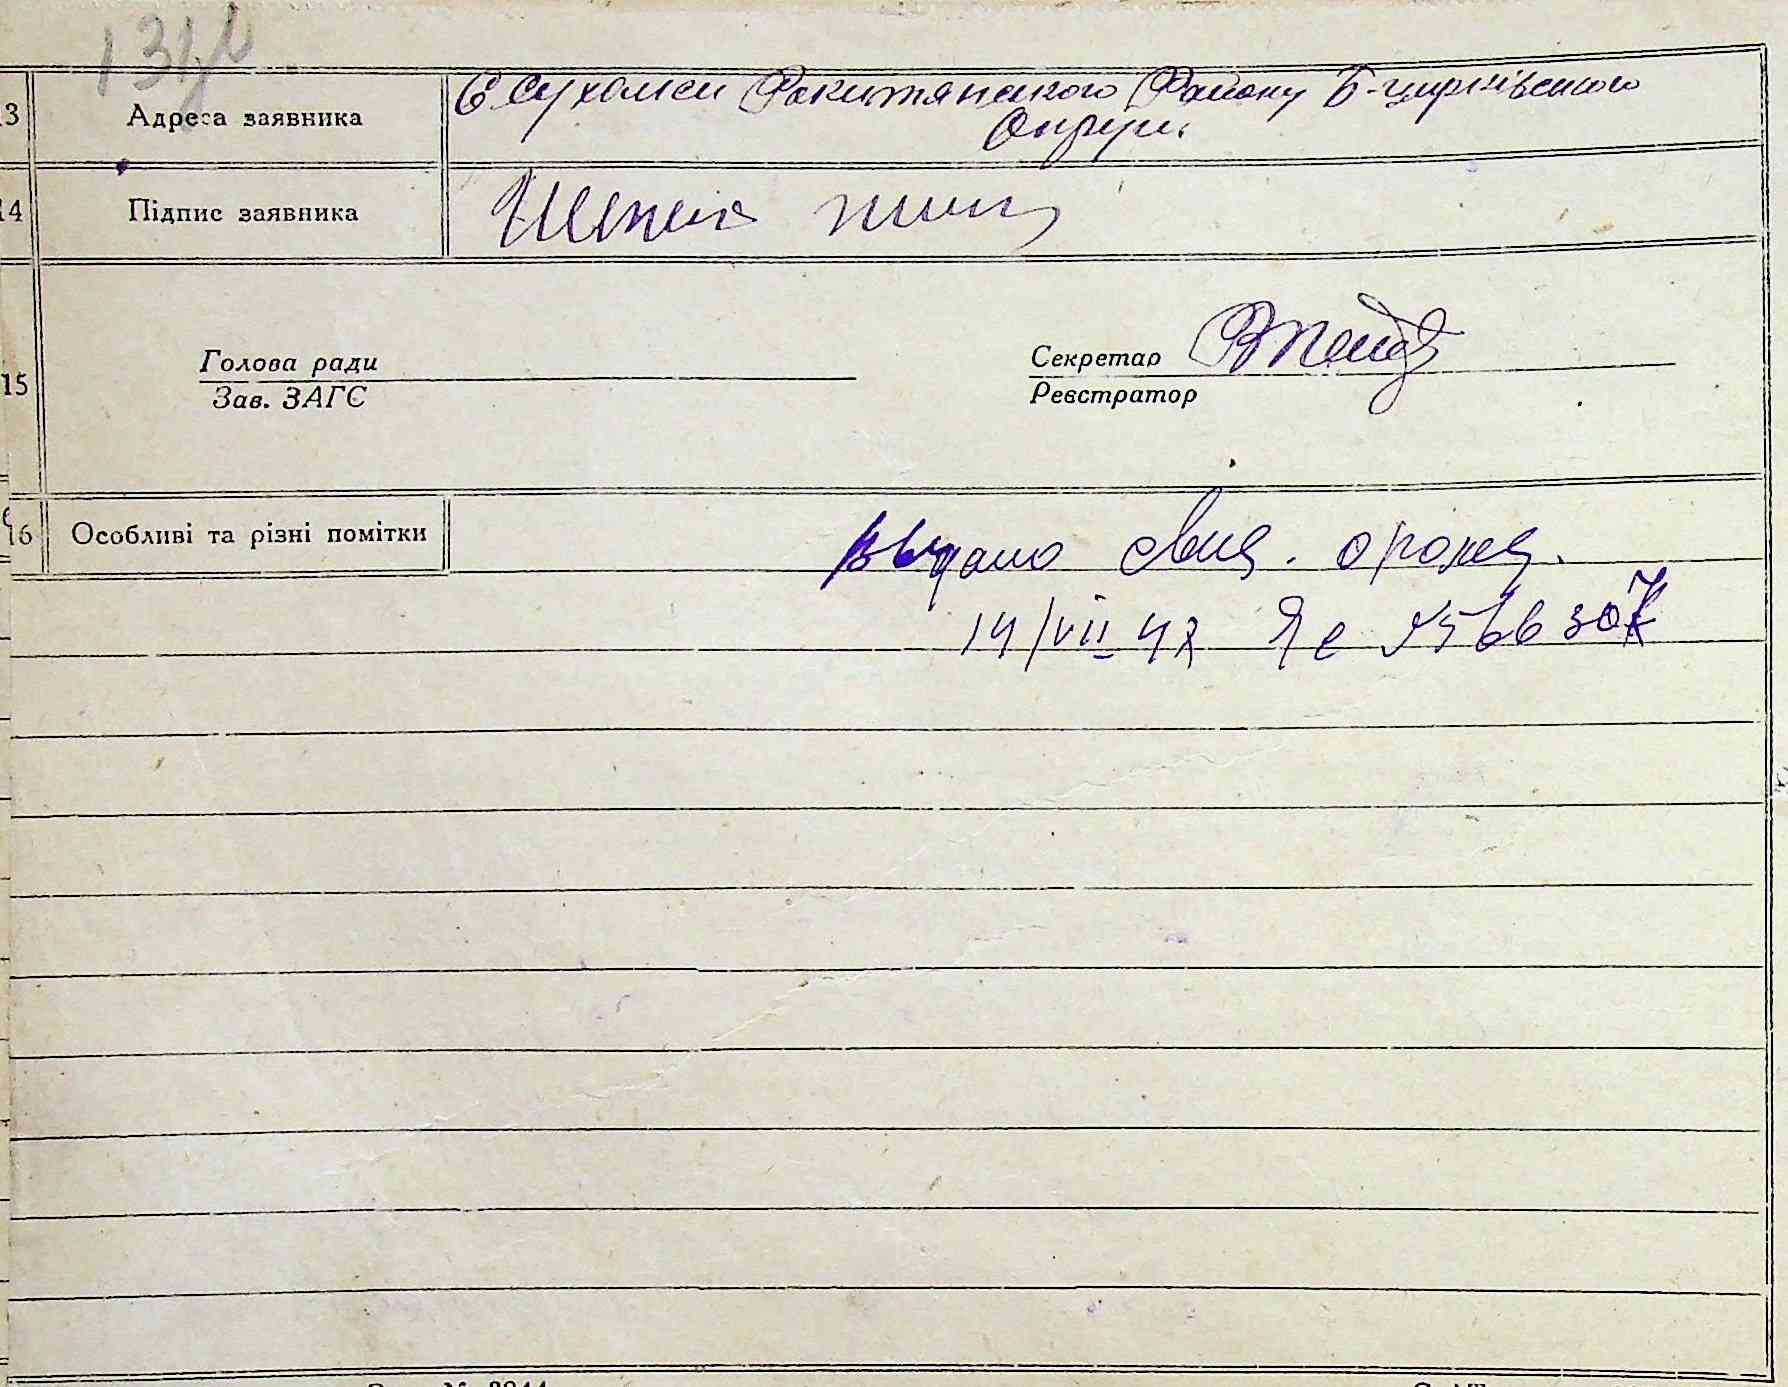 13 Адреса заявника С Сухолиси Рокитянского Району Б-Цирківського
Округи.
14 Підпис заявника
Голова ради
Зав. ЗАГС
Секретар
15
Реєстратор
16 Особливі та різні помітки Выдано свид. о рожд.
14/VII 47